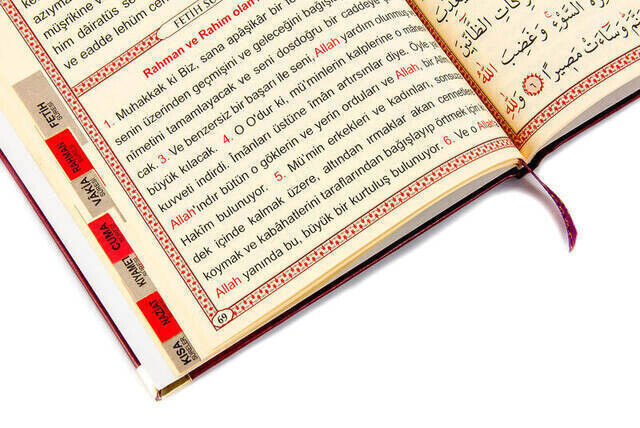 him dâiratüs
ve eadde lehüm
FETİH
Rahman ve Rahim olan
1. Muhakkak ki Biz, sana apâşikâr bir
senin üzerinden geçmişini ve geleceğini
nimetini tamamlayacak ve seni dosdoğru bir caddeye
cak. 3. Ve benzersiz bir başarı ile seni, Allah yardım
büyük kılacak. 4. O O'dur ki, mü'minlerin kalplerine o
kuvveti indirdi. Îmânları üstüne îmân artırsınlar diye. Öyle
Allah'indir bütün o göklerin ve yerin orduları ve Allah, bir
Hakîm bulunuyor. 5. Mü'min erkekleri ve kadınları,
dek içinde kalmak üzere, altından ırmaklar akan
koymak ve kabâhatlerini taraflarından bağışlayıp örtmek için
Allah yanında bu, büyük bir kurtuluş bulunuyor. 6. Ve o Allah
69
FETİH
RAHMAN
VÂKIA
CUMA
KIYAMET
NAZİAT
KISA
SURELER
السَّوْءِ وَغَضِبَ اللّٰهُ
وَسَاءَتْ مَصِيرًا ٦ وَلِلّٰهِ